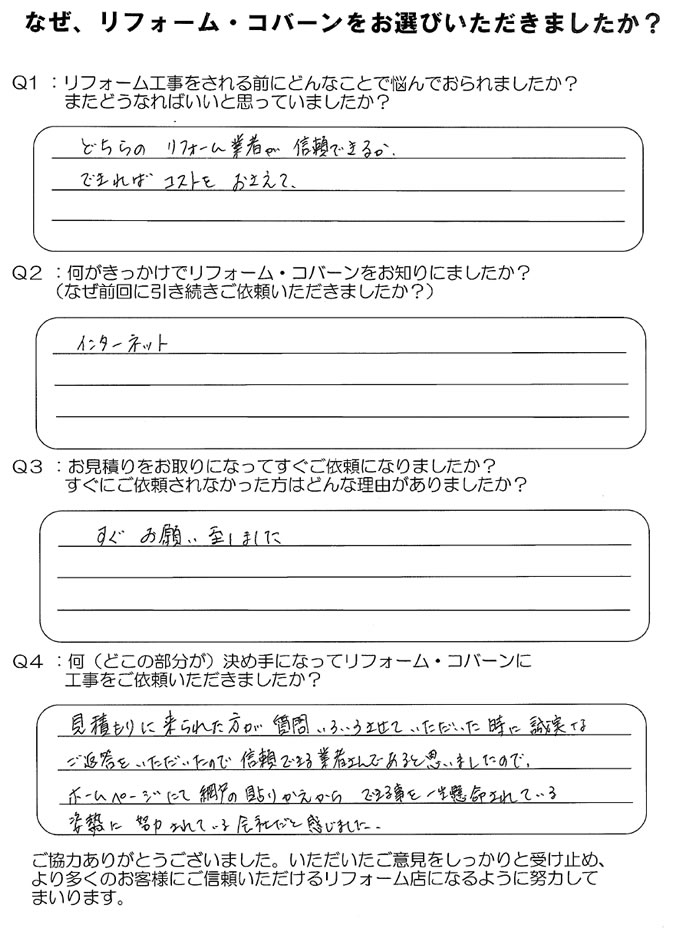 なぜ、リフォーム・コバーンをお選びいただきましたか？
Q1 ：リフォーム工事をされる前にどんなことで悩んでおられましたか？
またどうなればいいと思っていましたか？
どちらの リフォーム業者が 信頼できるか、
できれば コストを おさえて、
Q2 ：何がきっかけでリフォーム・コバーンをお知りにましたか？
（なぜ前回に引き続きご依頼いただきましたか？）
インターネット
Q3 ：お見積りをお取りになってすぐご依頼になりましたか？
すぐにご依頼されなかった方はどんな理由がありましたか？
すぐ お願い 至しました
Q4 ：何（どこの部分が）決め手になってリフォーム・コバーンに
工事をご依頼いただきましたか？
見積もりに 来られた方が 質問 いろいろさせて いただいた 時に 誠実な
ご返答を いただいたので 信頼できる業者さんであると思いましたので、
ホームページにて 網戸の貼りかえから できる事を 一生懸命されている
姿勢に 努力されている 会社だと 感じました、
ご協力ありがとうございました。いただいたご意見をしっかりと受け止め、
より多くのお客様にご信頼いただけるリフォーム店になるように努力して
まいります。